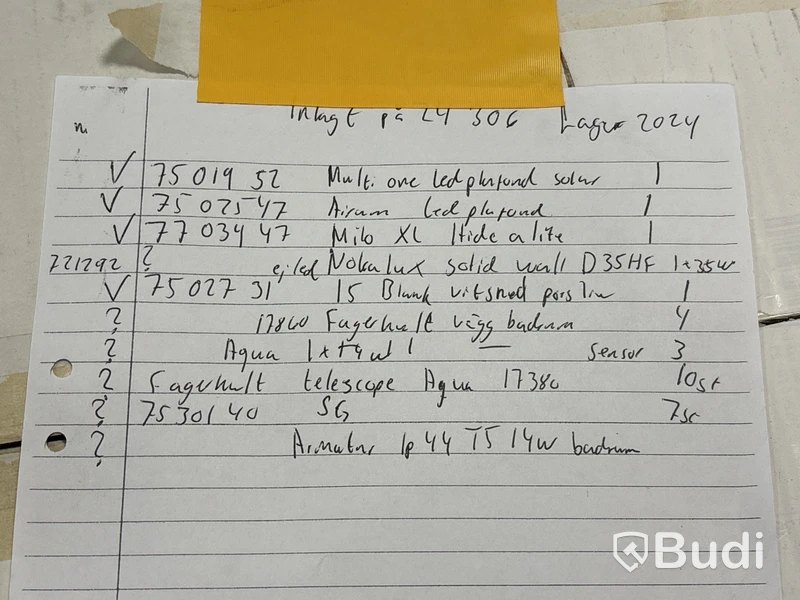 Inlagt på 24 306 Lager 2024
n.
✓ 75 019 52 Multi one led plafond solar 1
✓ 75 025 47 Airam led plafond 1
✓ 77 034 47 Milo XL Hide a lite 1
721292 ? ej led Nokalux solid wall D35HF 1x35w
✓ 75 027 31 15 Blank vit sned porslin 1
? 17860 Fagerhult vägg badrum 4
? Aqua 1x14w 1 — sensor 3
? Fagerhult telescope Aqua 17380 10st
? 75 301 40 SG 7st
? Armatur Ip 44 T5 14w badrum
Budi